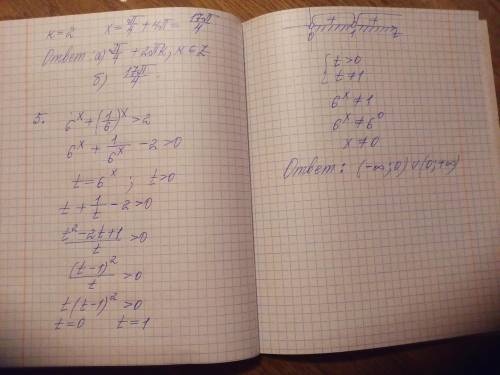 k=2 x = π/4 + 4π = 17π/4
Ответ: а) π/4 + 2πk, k ∈ Z
б) 17π/4
5. 6^x + (1/6)^x > 2
6^x + 1/6^x - 2 > 0
t = 6^x ; t > 0
t + 1/t - 2 > 0
(t² - 2t + 1)/t > 0
(t-1)²/t > 0
t(t-1)² > 0
t = 0 t = 1
0 1 t
{ t > 0
{ t ≠ 1
6^x ≠ 1
6^x ≠ 6^0
x ≠ 0
Ответ: (-∞; 0) ∪ (0; +∞)